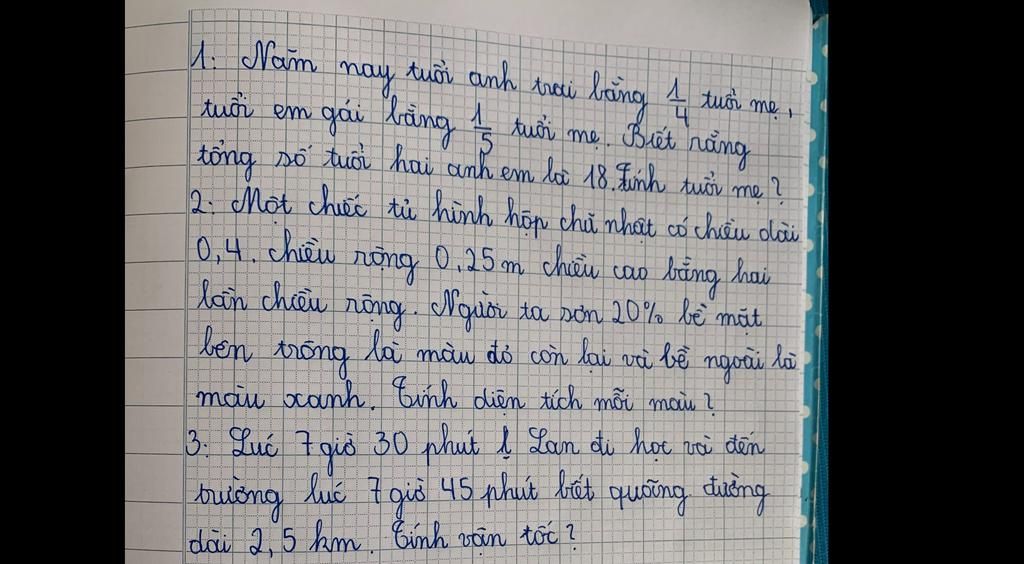 1. Năm nay tuổi anh trai bằng 1/4 tuổi mẹ,
tuổi em gái bằng 1/5 tuổi mẹ. Biết rằng
tổng số tuổi hai anh em là 18. Tính tuổi mẹ?
2. Một chiếc tủ hình hộp chữ nhật có chiều dài
0,4. chiều rộng 0,25m chiều cao bằng hai
lần chiều rộng. Người ta sơn 20% bề mặt
bên trong là màu đỏ còn lại và bề ngoài là
màu xanh. Tính diện tích mỗi màu?
3. Lúc 7 giờ 30 phút Lan đi học và đến
trường lúc 7 giờ 45 phút biết quãng đường
dài 2,5 km. Tính vận tốc?